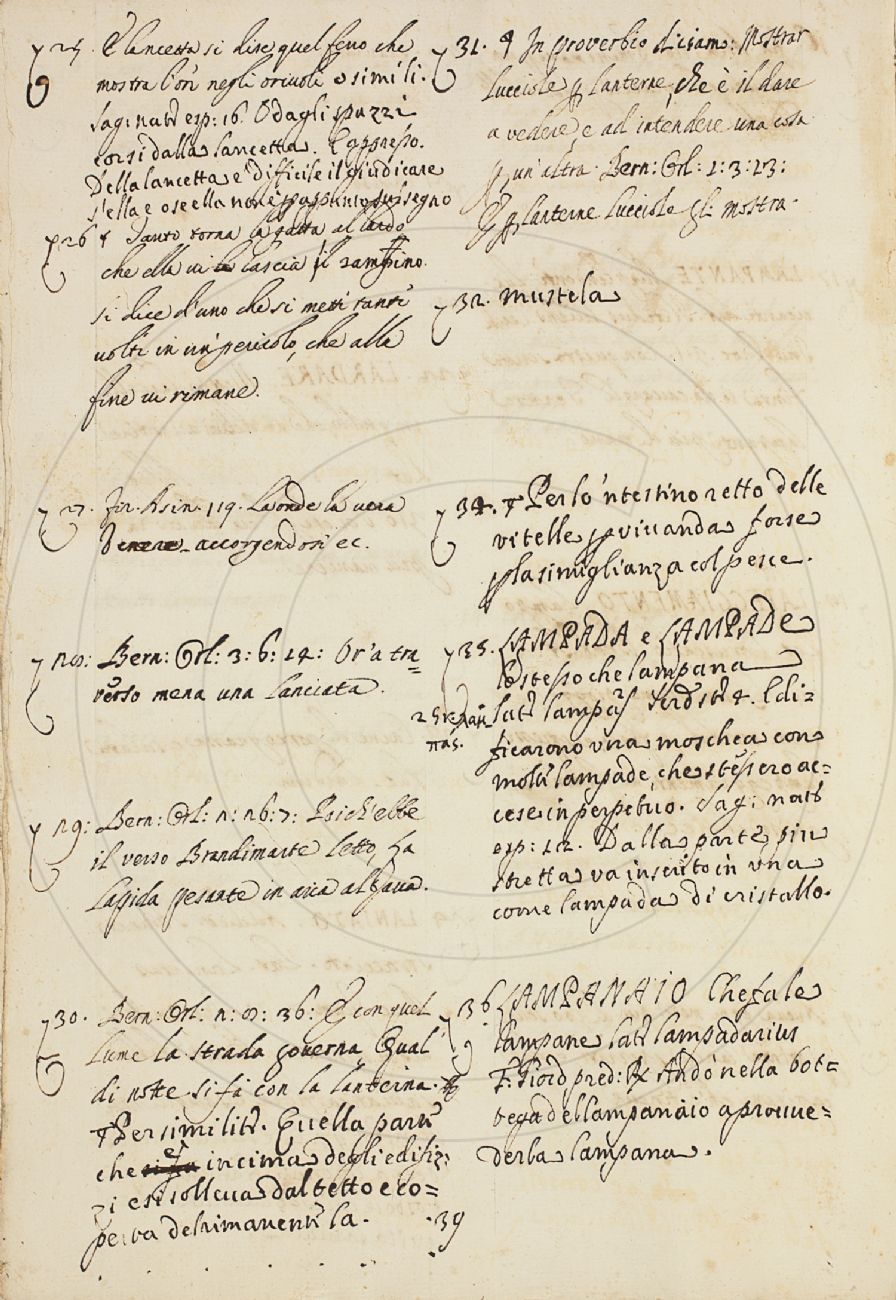 25. E lancetta si dice quel ferro che
mostra l'ore negli oriuoli e simili.
Sag: nat: esp: 16. O dagli spazzi
corsi dalla lancetta. E appresso.
Della lancetta è difficile il giudicare
s'ella è o se ella non è appunto sul segno
26 Tanto torna la gatta al lardo
che ella vi lascia il zampino.
si dice d'uno che si mette tante
volte in un pericolo, che alla
fine vi rimane.
27. Fir. Asin. 119. Laonde la vera
Venere accorgendosi ec.
n8: Bern: Orl: 3: 6: 14: Or'a tra=
verso mena una lanciata.
n9: Bern: Orl: n: n6: 7: Poich'ebbe
il verso Brandimarte letto, La
lapida pesante in aria alzava.
30. Bern: Orl: n: 8: 36: E con quel
lume la strada governa, Qual
di notte si fà con la lanterna.
Per similit. Quella parte
che è in cima degli edifiz:
zi e si solleva dal tetto e co=
perta del rimanente la.
31. In proverbio diciamo: Mostrar
lucciole p lanterne, che è il dare
a vedere, e ad intendere una cosa
p un'altra. Bern: Orl: 1: 3: 23:
E p lanterne lucciole gli mostra.
32. mustela
34. Per lo 'ntestino retto delle
vitelle p vivanda forse
p la simiglianza col pesce.
35. LAMPADA e LAMPADE
lo stesso che lampana
lat. lampas Serd. st. 4. Edi=
ficarono una moschea con
molte lampade, che stessero ac=
cese in perpetuo. Sag: nat:
esp: 12. Dalla parte più
stretta va inserito in una
come lampada di cristallo.
36 LAMPANAIO Che fa le
lampane lat. lampadarius
F. Giord. pred: R Andò nella bot=
tega del lampanaio a provve=
der la lampana.
39